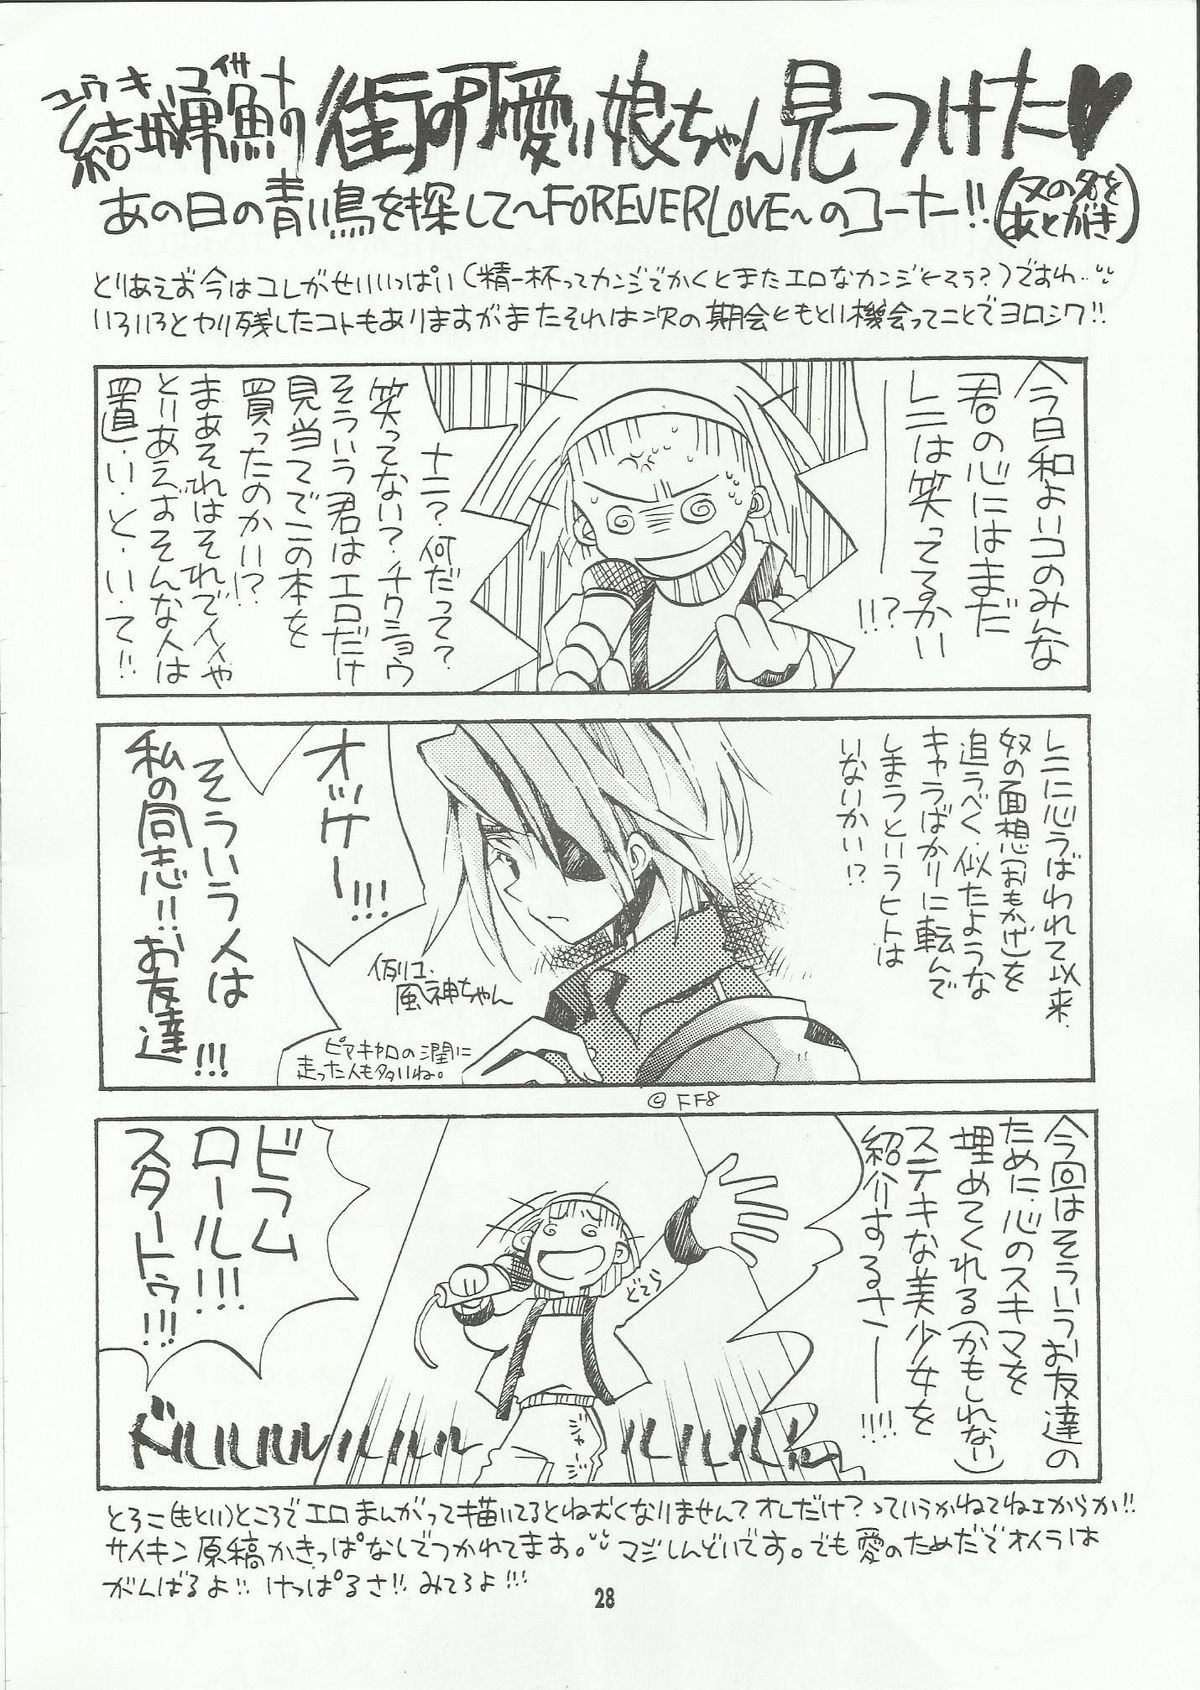 ユウキコイサナ
結城 鮪の街の可愛い娘ちゃん見ーつけた♥
あの日の青い鳥を探して〜FOREVER LOVE〜のコーナー!!(又の名をあとがき)
とりあえず今はコレがせいいっぱい(精一杯ってカンジでかくとまたエロなカンジしそう?)ですわ…
いろいろとヤリ残したコトもありますがまたそれは次の期会ともとい機会ってことでヨロシク!!
今日和よいコのみんな
君の心にはまだ
レニは笑ってるかい
――!!?
ナニ?何だって?
笑ってない?チクショウ
そういう君はエロだけ
見当てでこの本を
買ったのかい!?
まあそれはそれでイイや
とりあえずそんな人は
置・い・と・い・て!!
レニに心うばわれて以来
奴の面想(おもかげ)を
追うべく似たような
キャラばかりに転んで
しまうというヒトは
いないかい!?
オッケー!!!
そういう人は
私の同志!!お友達!!!
例えば、
風神ちゃん
ピマキャロの潤に
走った人も多いね。
©FF8
今回はそういうお友達の
ために心のスキマを
埋めてくれる(かもしれない)
ステキな美少女を
紹介するさーー!!!!
どてら
ジャージ
ビラム
ロール!!!
スタートゥ!!!
ドルルルルルルル
ルルルル
とろこ(もとい)ところでエロまんがって描いてるとねむくなりませんてオレだけ?っていうかねてねェからか!!
サイキン原稿かきっぱなしでつかれてます。マジしんどいです。でも愛のためだでオイラは
がんばるよ!!けっぱるさ!!みてろよ!!!
28